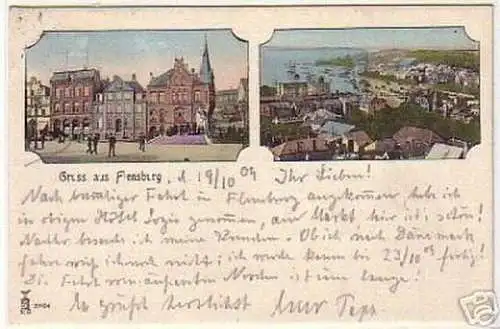 Gruss aus Flensburg, d 19/10 09 Ihr Lieben!
Nach Fahrt in Flensburg angekommen, habe ich
in obigem Hôtel Logis genommen, am Markt hier ist's schön!
ich meine Kunden. Ob ich nach Dänemark
fahre weiß ich noch nicht; ich werde kaum bis 23/10 09 fertig!
Die Fahrt vom äußersten Norden ist eine lange!
Es grüßt herzlichst Euer Papa